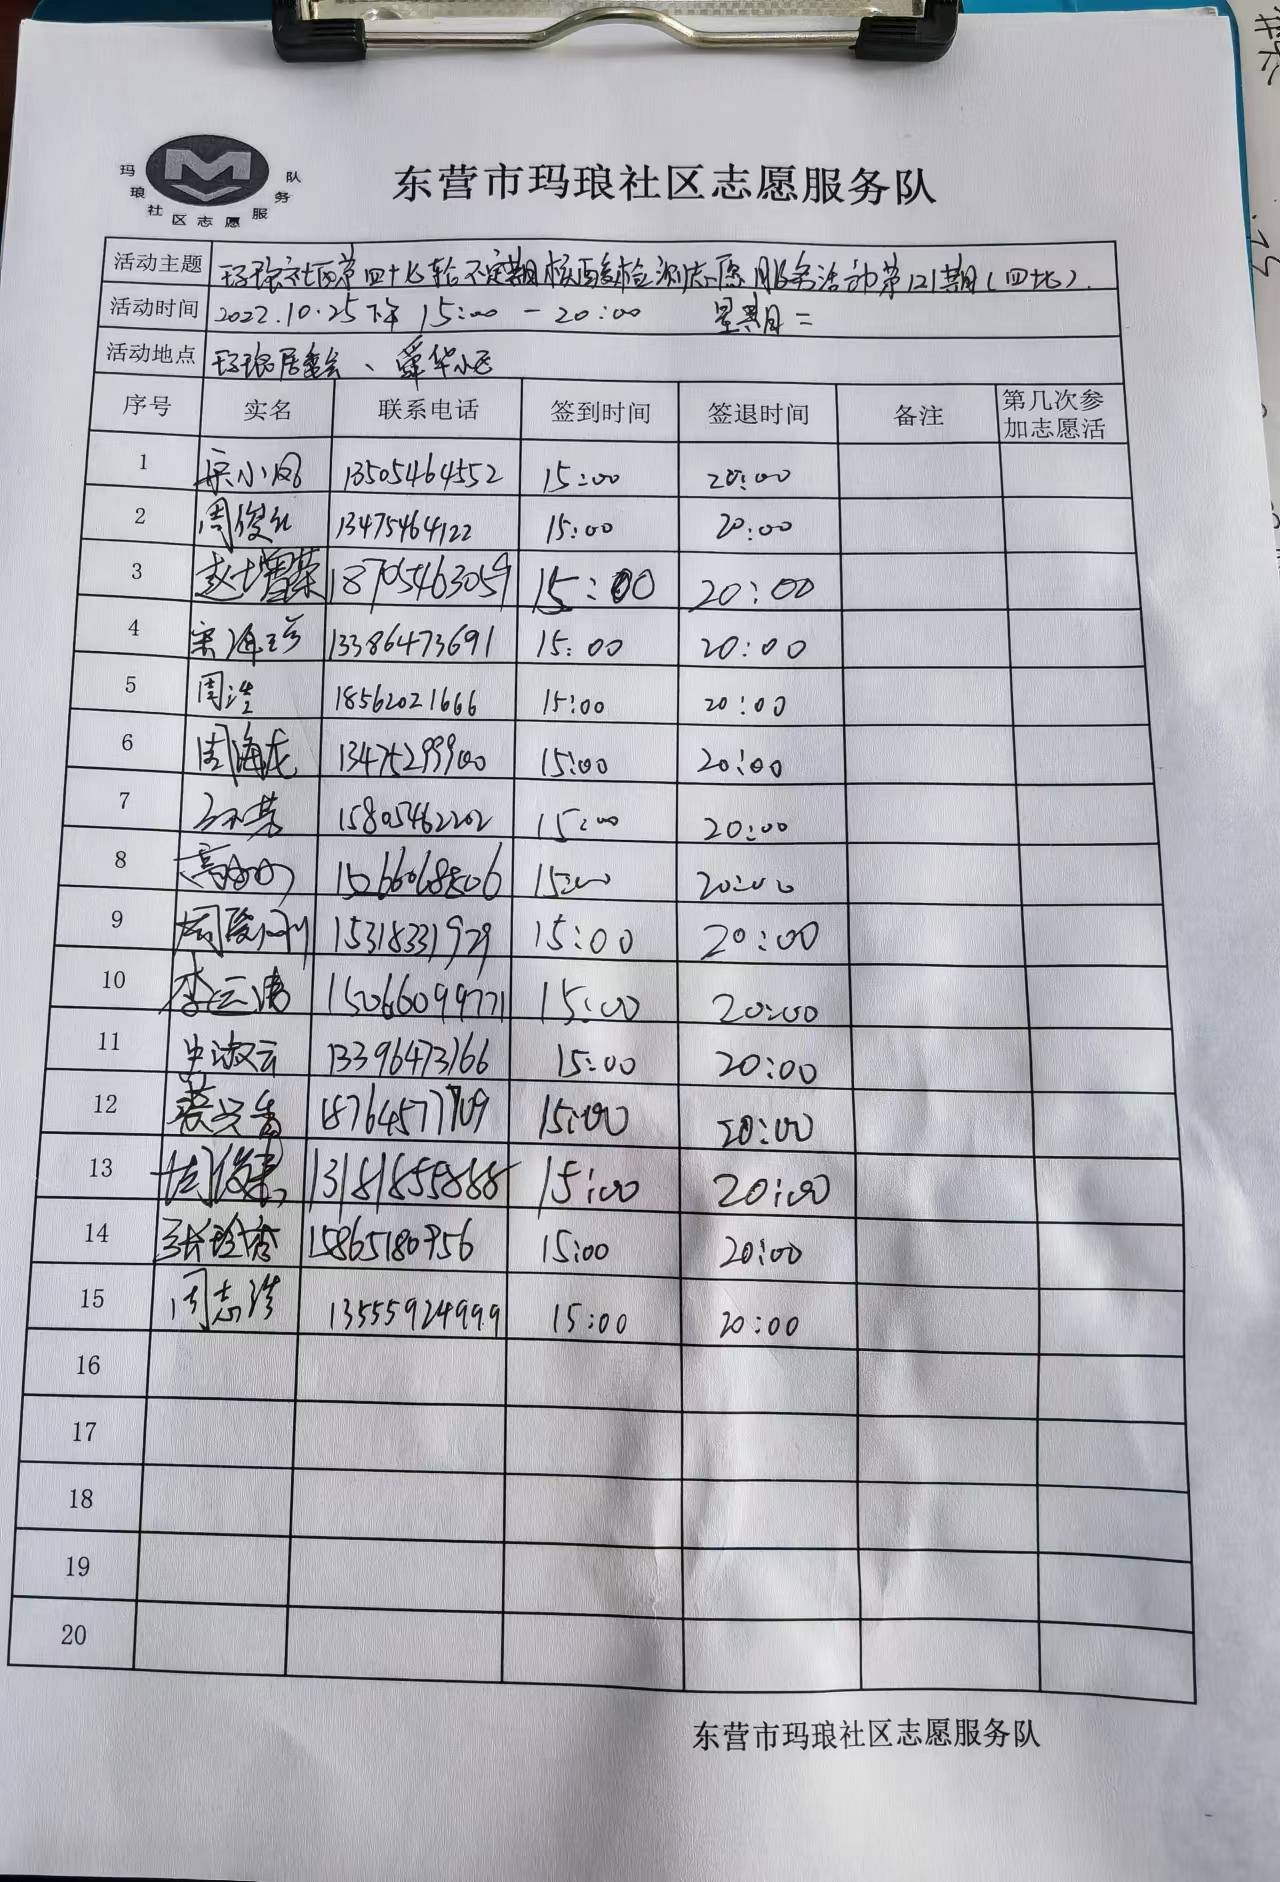 玛琅社区志愿服务队
东营市玛琅社区志愿服务队
活动主题 玛琅社区第四十七轮不定期核酸检测志愿服务活动第121期(四北).
活动时间 2022.10.25下午 15:00-20:00 星期二
活动地点 玛琅居委会、舜华小区
序号 实名 联系电话 签到时间 签退时间 备注 第几次参加志愿活
1 宋小凤 13505464552 15:00 20:00
2 周俊红 13475464122 15:00 20:00
3 赵增荣 18705463059 15:00 20:00
4 宋海珍 13386473691 15:00 20:00
5 周浩 18562021666 15:00 20:00
6 周海龙 13475299900 15:00 20:00
7 15805462202 15:00 20:00
8 15066068806 15:00 20:00
9 15318331929 15:00 20:00
10 李云涛 15066099771 15:00 20:00
11 史淑云 13396473166 15:00 20:00
12 18764577709 15:00 20:00
13 13181855888 15:00 20:00
14 张玲香 15865180956 15:00 20:00
15 周志浩 13555924999 15:00 20:00
16
17
18
19
20
东营市玛琅社区志愿服务队